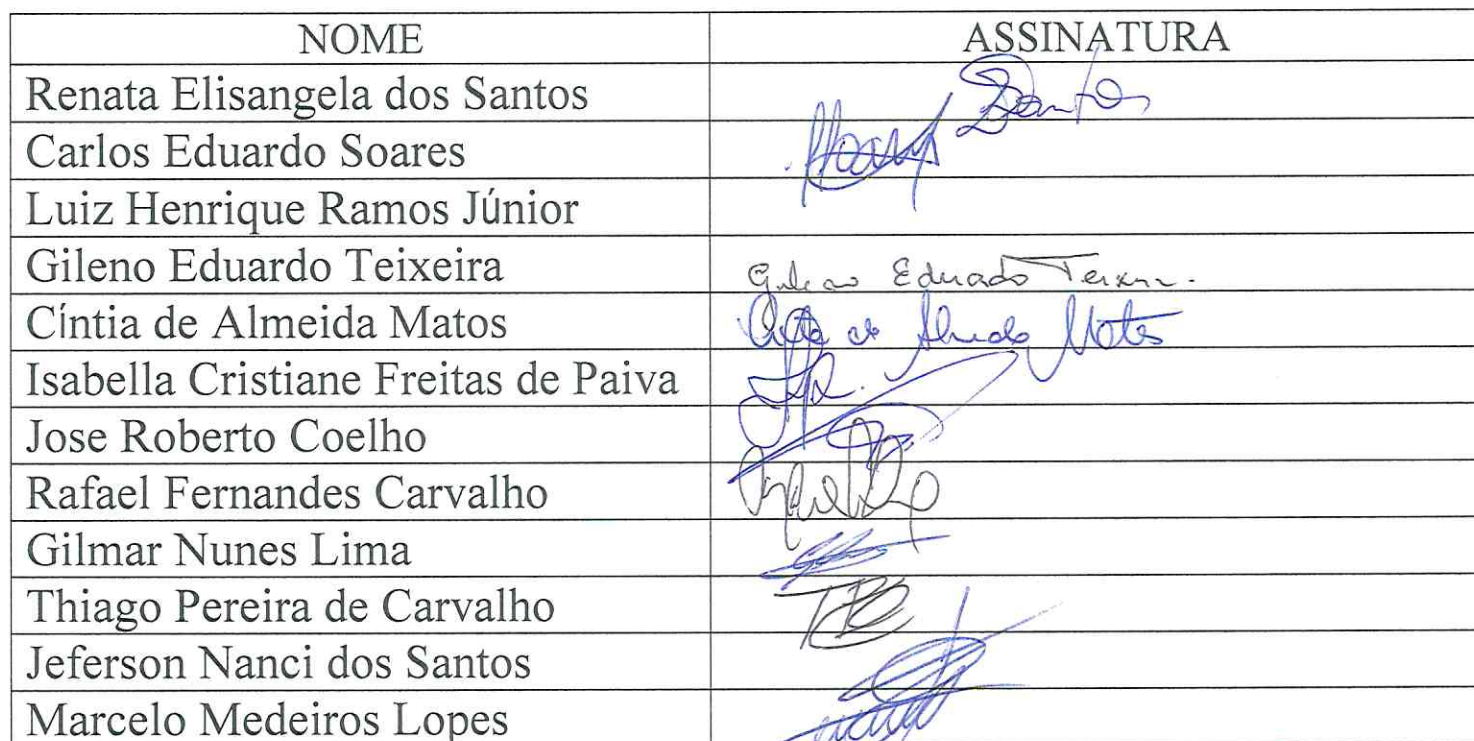 NOME ASSINATURA
Renata Elisangela dos Santos Santos
Carlos Eduardo Soares
Luiz Henrique Ramos Júnior
Gileno Eduardo Teixeira Gileno Eduardo Teixeira.
Cíntia de Almeida Matos Cíntia de Almeida Matos
Isabella Cristiane Freitas de Paiva
Jose Roberto Coelho
Rafael Fernandes Carvalho
Gilmar Nunes Lima
Thiago Pereira de Carvalho TPC
Jeferson Nanci dos Santos
Marcelo Medeiros Lopes